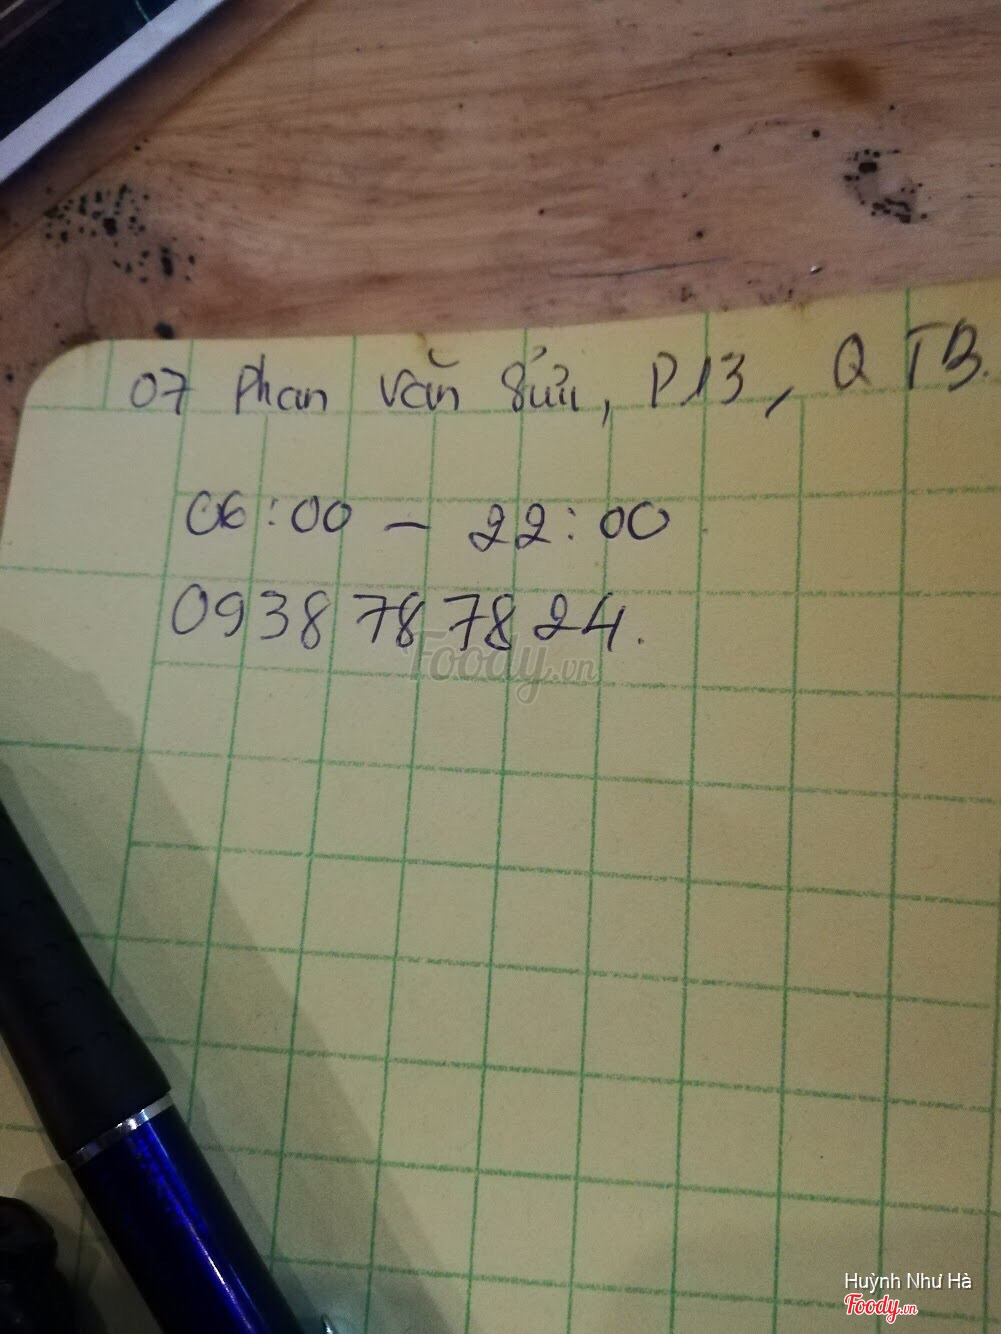 07 Phan Văn Sửu, P13, Q TB.
06:00 - 22:00
0938 78 78 24.
Foody.vn
Huỳnh Như Hà
Foody.vn